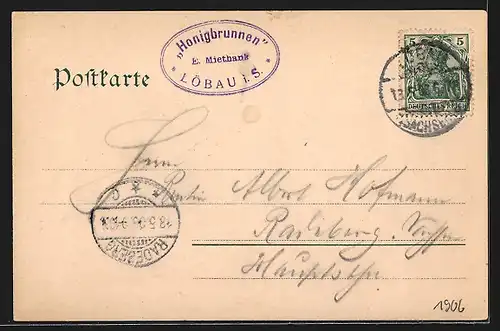 „Honigbrunnen“
E. Miethank
* LÖBAU i. S. *
Postkarte
5 5
DEUTSCHES REICH
(SACHSEN)
Herrn
Albert Hofmann
Radeberg
Hauptstr.
* * C
18.5.06
RADEBERG
1906